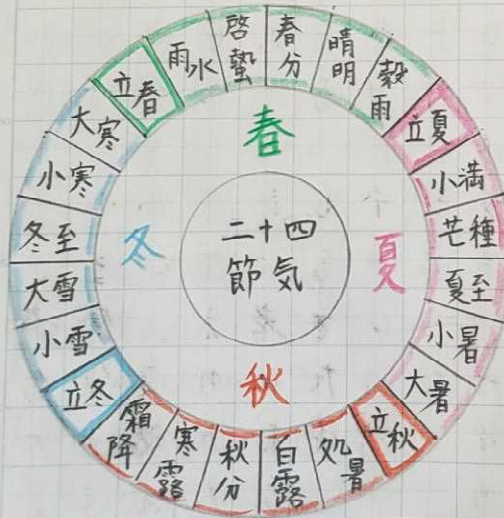 二十四
節気
春
夏
秋
冬
立春
雨水
啓蟄
春分
晴明
穀雨
立夏
小満
芒種
夏至
小暑
大暑
立秋
処暑
白露
秋分
寒露
霜降
立冬
小雪
大雪
冬至
小寒
大寒